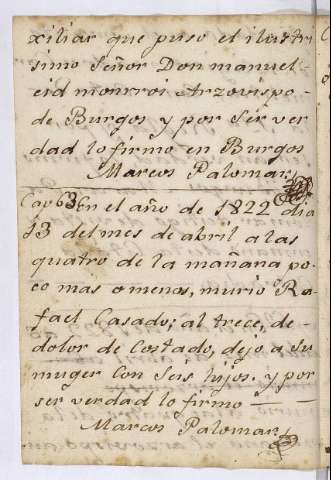 xiliar que puso el ilustri
simo Señor Don manuel
cid monrroi Arzovispo
de Burgos y por ser ver
dad lo firmo en Burgos
Marcos Palomar
Cap 63 en el año de 1822 dia
13 del mes de abril a las
quatro de la mañana po
co mas o menos, murio Ra
fael Casado; al trece, de
dolor de Costado, dejo a su
muger con seis hijos. y por
ser verdad lo firmo
Marcos Palomar